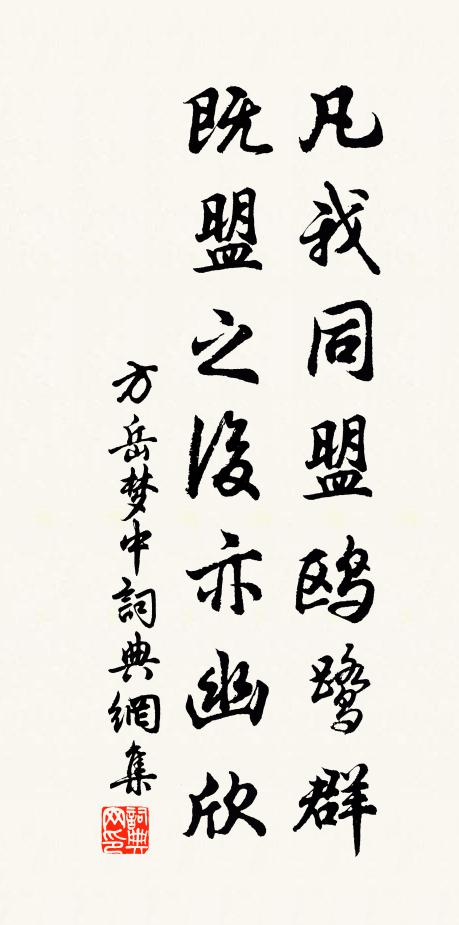 凡我同盟鸥鹭群
既盟之後亦幽欣
方岳梦中詞典網集
詞典
网印